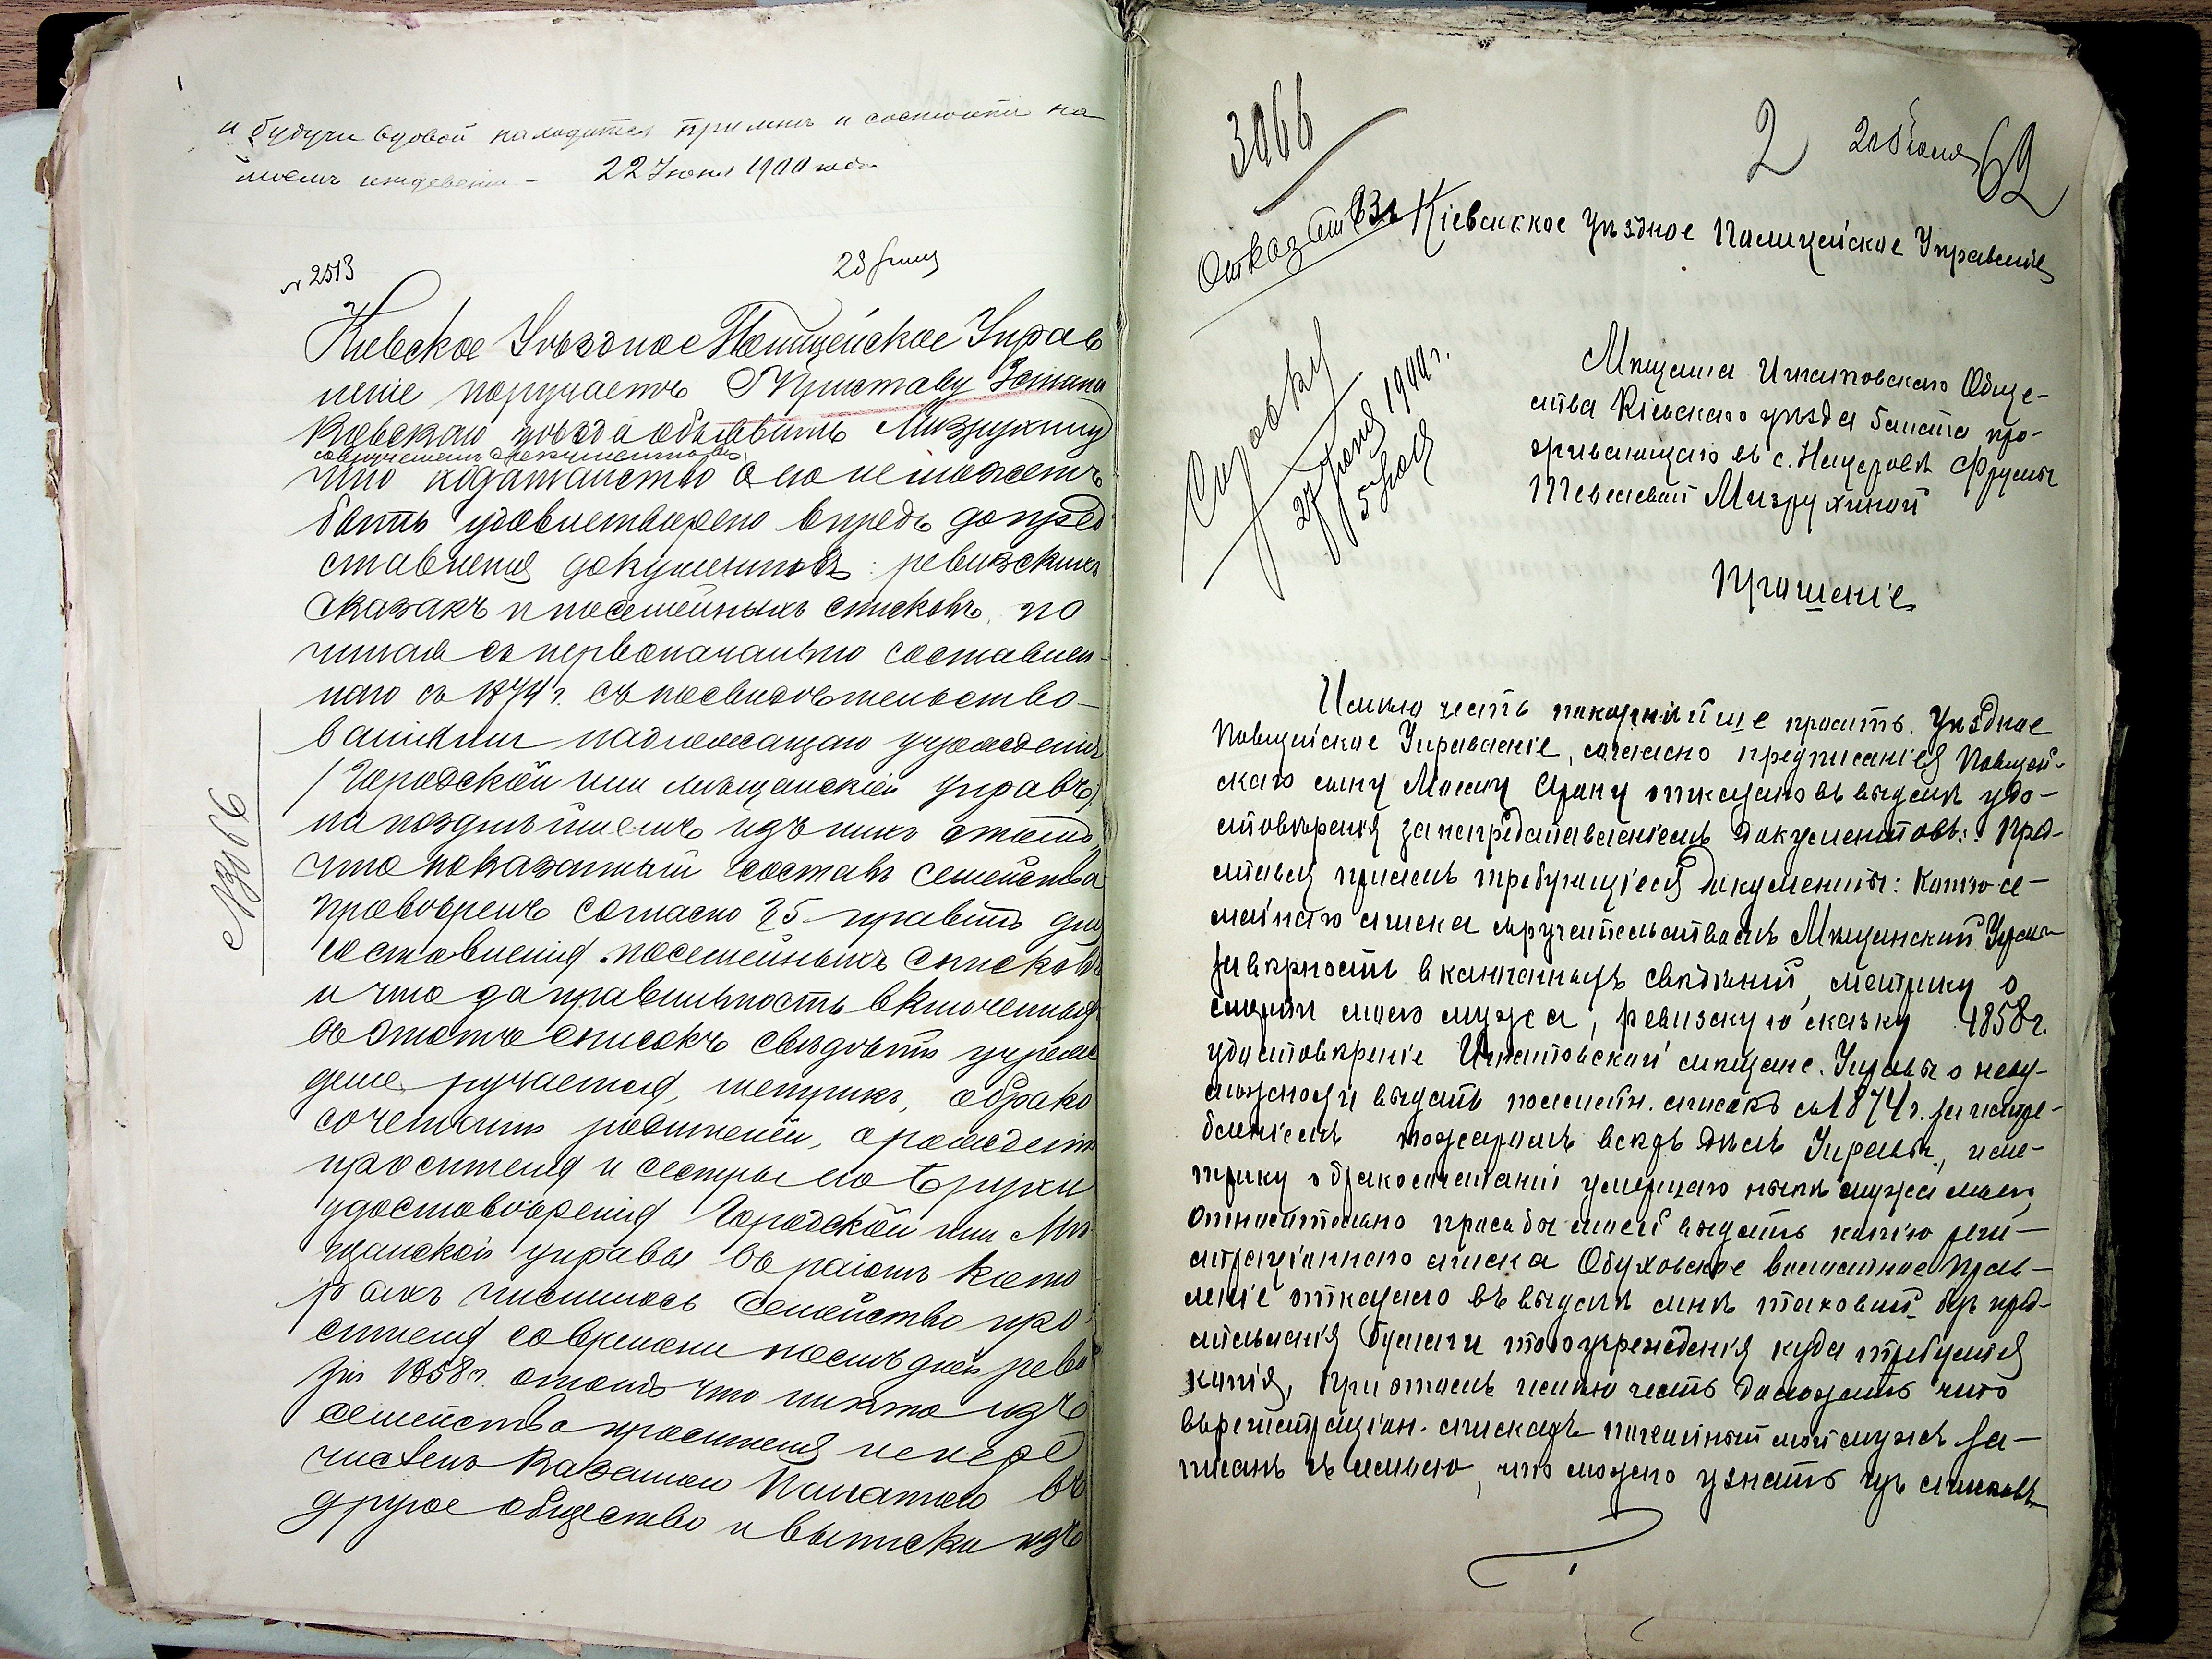 и будучи вдовой находится при мнѣ и состоитъ на
моемъ иждевеніи – 22 Іюня 1900 года
№ 2513
23 Іюня
Киевское Уѣздное Полицейское Управ
леніе поручаетъ Г Приставу
Киевскаго уѣзда объявить Мизрухину
что ходатайство его не можетъ
быть удовлетворено впредь до пред
ставления документовъ: ревизскихъ
сказакъ и посемейныхъ списковъ, на
чиная съ первоначально составлен-
наго съ 1874 г. съ посвидѣтельство-
ваніями надлежащаго учрежденія
/Городской или мѣщанскіей управъ)
на позднѣйшемъ изъ нихъ о томъ,
что показанный составъ семейства
провѣренъ согласно 25 правилъ для
составленія посемейныхъ списковъ
и что за правильность включенныхъ
въ этотъ списокъ свѣдѣній учреж
деніе ручается, метрикъ, о брако
сочетаніи родителей, о рожденіи
просителя и сестры его
удостовѣренія Городской или Мѣ
щанской управы въ раіонѣ кото
рыхъ числилось семейство про
сителя со времени послѣдней реви
зіи 1858 г. о томъ что никто изъ
семейства просителя не пере
численъ Казенною Палатою въ
другое общество и выписки изъ
№ 3066
3066
2
62
Отказать
27 Іюня 1900 г.
5 Іюля
Въ Кіевское Уѣздное Полицейское Управленіе
Мѣщанки Игнатовскаго Обще-
ства Кіевскаго уѣзда
живающаго въ с. Фрумы
Мизрухиной
Прошеніе
Имѣю честь покорнѣйше просить Уѣздное
Полицейское Управленіе, согласно предписанія Полицей-
скаго сыну Моему отказано въ выдачѣ удо-
стовѣренія за непредставленіемъ документовъ: Пред-
ставляя при семъ требующіеся документы: копію се-
мейнаго списка съ ручательствомъ Мѣщанской Управы
за вѣрность въ свѣдѣній, метрику о
смерти моего мужа, ревизскую сказку 1858 г.
удостовѣреніе Игнатовской мѣщанс. Управы о невоз-
можности выдать посемейн. списокъ съ 1874 г. за истре-
бленіемъ пожаромъ всѣхъ дѣлъ Управы, и ме-
трику о бракосочетаніи умершаго нынѣ мужа моего
относительно просьбы моей выдать копію реги-
страціоннаго списка Обуховское волостное Прав-
леніе отказало въ выдачѣ мнѣ таковой безъ пред-
ставленія бумаги того учрежденія куда требуется
копія, при этомъ имѣю честь доложить что
въ регистраціон. спискахъ покойный мой мужъ за-
писанъ съ семьею, что можно узнать изъ списковъ